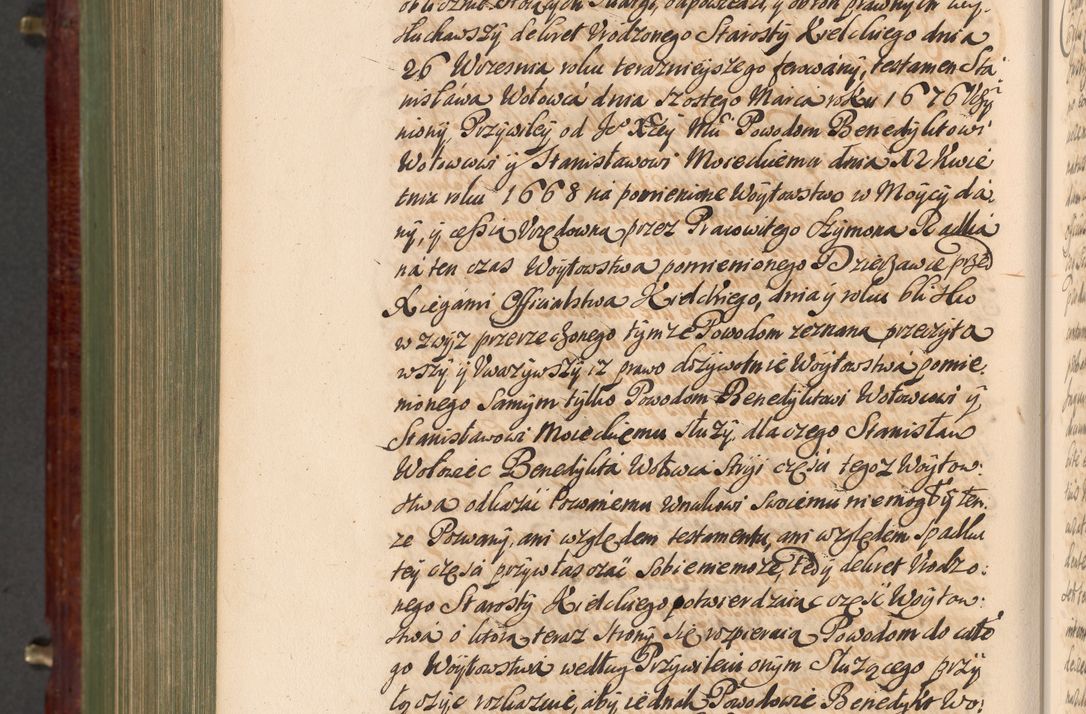 oblicznie stoiących skargi, odpowiedzi, y obron prawnych wy
słuchawszy dekret Urodzonego Starosty Kielckiego dnia
26 Wrzesnia roku terazniejszego ferowany, testamen Sta
nisława Wołowca dnia szostego Marca roku 1676 Uczy
niony, Przywiley od Je° XCey Mci Powodom Benedyktowi
Wołowcowi y Stanisławowi Moreckiemu dnia 12 Kwie
tnia roku 1668 na pomienione Woytowstwo w Moycy da
ny, y cessia Urzędowna przez Pracowitego Szymona Radlia
na ten czas Woytowstwa pomienionego Dzierzawcę przed
Xięgami Officialstwa Kielckiego, dnia y roku blisko
wzwyz przerzeczonego tymze Powodom zeznana przeczyta
wszy y Uwazywszy, iz prawo dozywotnie Woytowstwa pomie,
nionego samym tylko Powodom Benedyktowi Wołowcowi y
Stanisławowi Moreckiemu słuzy, dla czego Stanisław
Wołowiec Benedykta Wołowca Stryi części tegoz Woytow:
stwa odkazać Pozwanemu Wnukowi swoiemu niemogł, y ten.
ze Pozwany, ani względem testamentu, ani względem spadku
tey części przywłaszczać sobie niemoże, tedy dekret Urodzo:
nego Starosty Kielckiego potwierdzaiąc część Woytow:
stwa o ktorą teraz strony się rozpieraią Powodom do całe
go Woytowstwa według Przywileiu onym słuzącego przy
łączyć rozkazuie, aby iednak Powodowie Benedykt Wo: